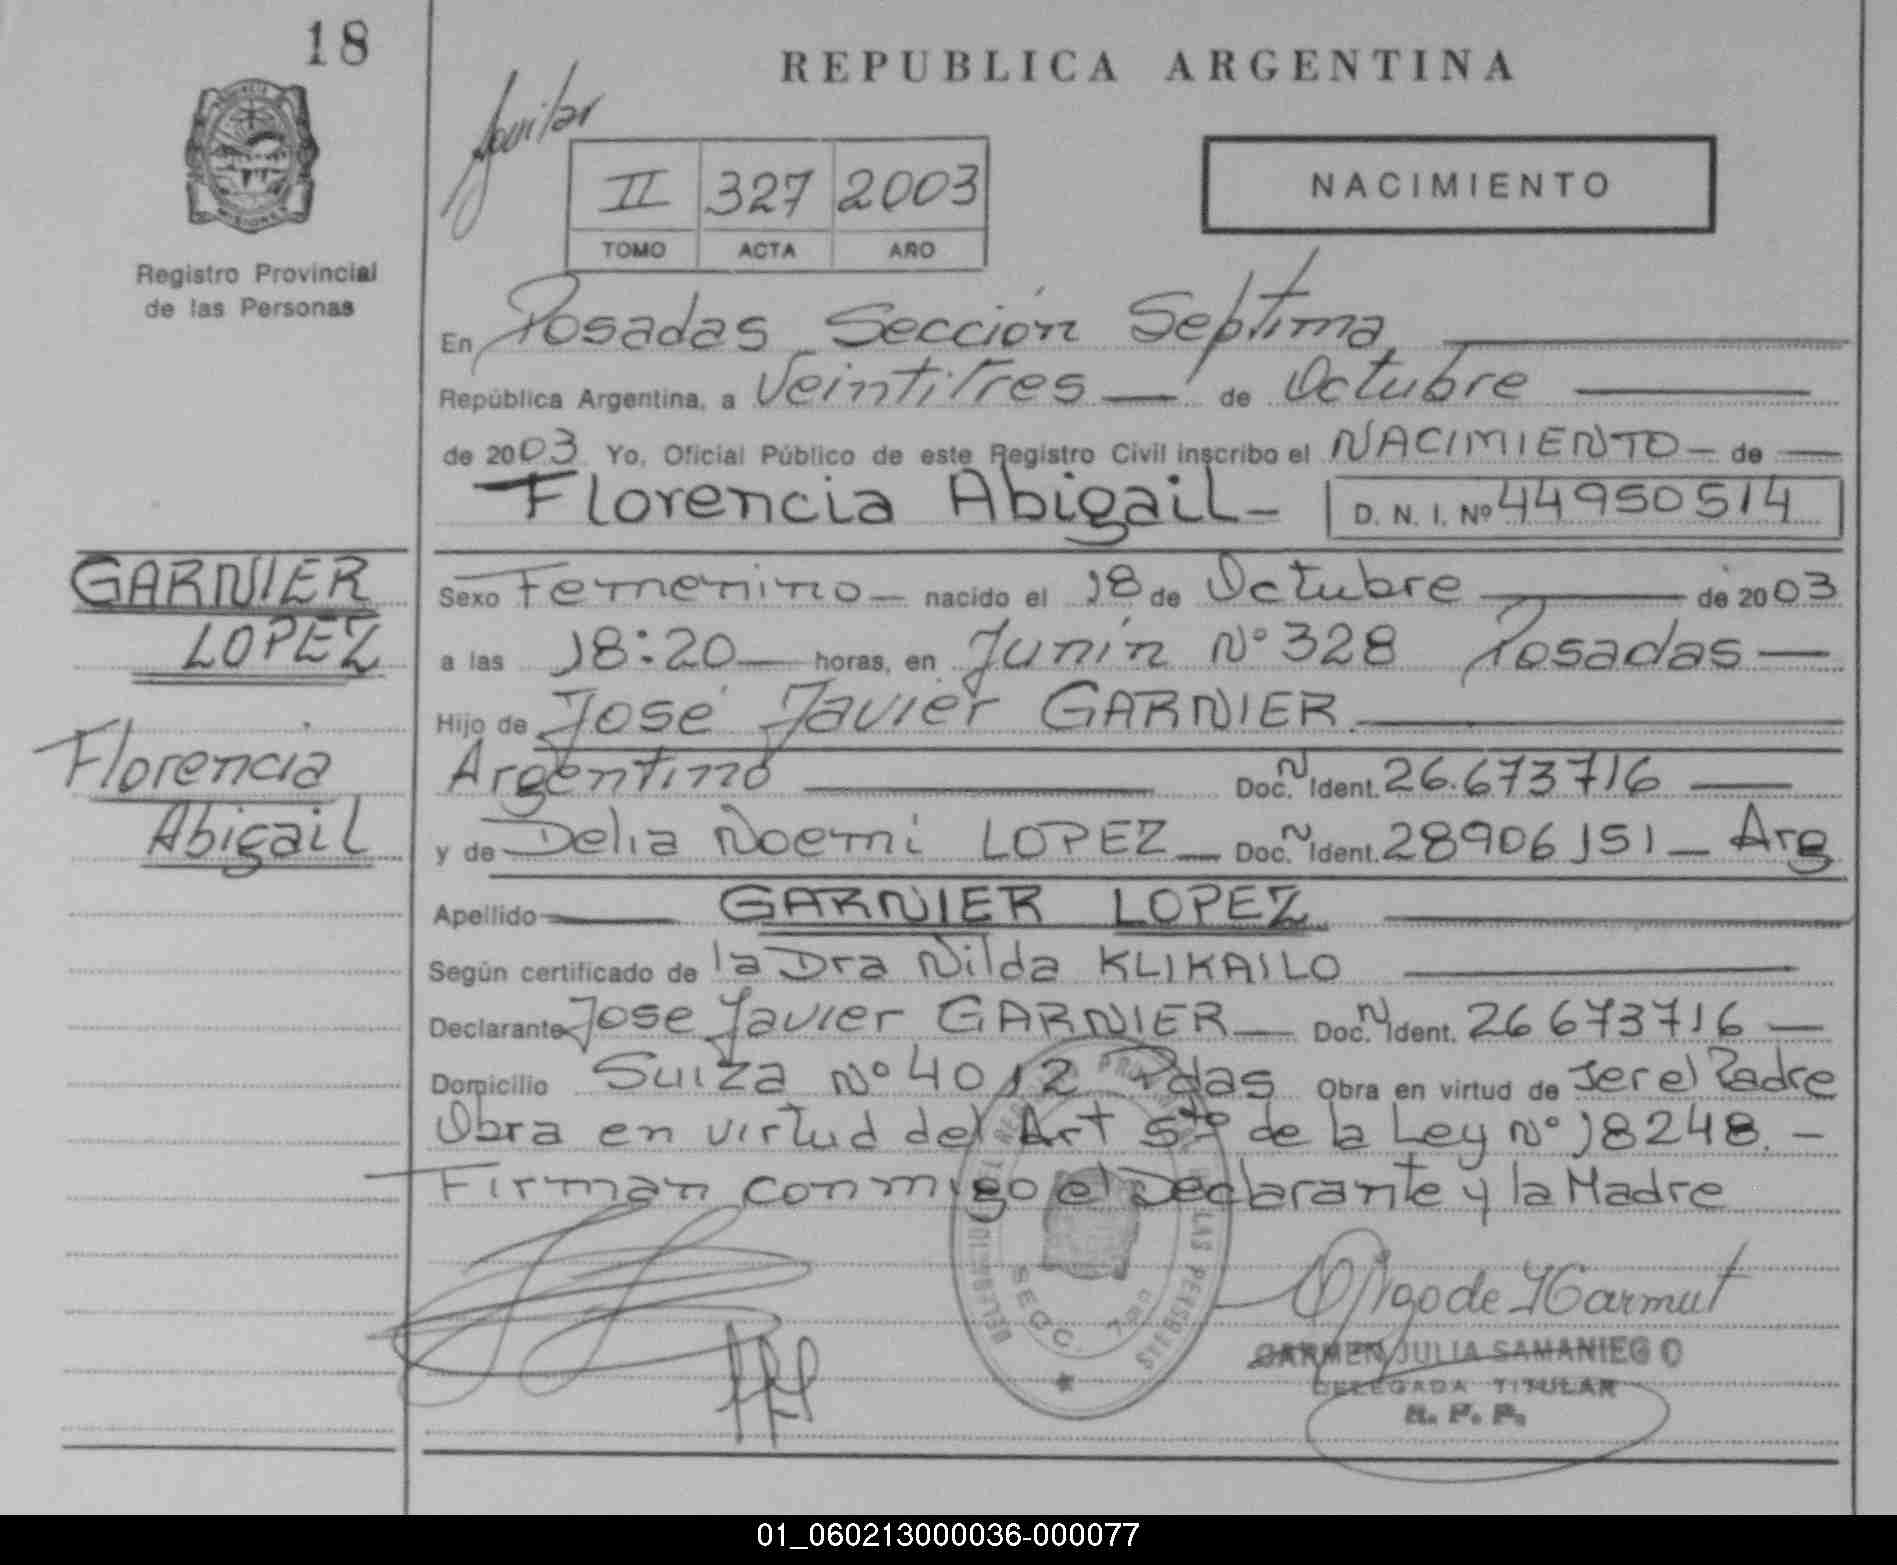 18
REPUBLICA ARGENTINA
Aguilar
II 327 2003
TOMO ACTA AÑO
NACIMIENTO
Registro Provincial
de las Personas
En Posadas Sección Septima
República Argentina, a Veintitres de Octubre
de 2003 Yo, Oficial Público de este Registro Civil inscribo el NACIMIENTO de
Florencia Abigail D. N. I. Nº 44950514
GARNIER
LOPEZ
Florencia
Abigail
Sexo Femenino nacido el 18 de Octubre de 2003
a las 18:20 horas, en Junín Nº 328 Posadas
Hijo de José Javier GARNIER
Argentino Doc. N Ident. 26.673716
y de Delia Noemi LOPEZ Doc. N Ident. 28906151 Arg
Apellido GARNIER LOPEZ
Según certificado de la Dra Nilda KLIKAILO
Declarante Jose Javier GARNIER Doc. N Ident. 26673716
Domicilio Suiza Nº 4012 Pdas Obra en virtud de ser el Padre
Obra en virtud del Art 5to de la Ley Nº 18248.
Firman conmigo el Declarante y la Madre
SECC. 7ma
CARMEN JULIA SAMANIEGO
DELEGADA TITULAR
R. P. P.
01_060213000036-000077